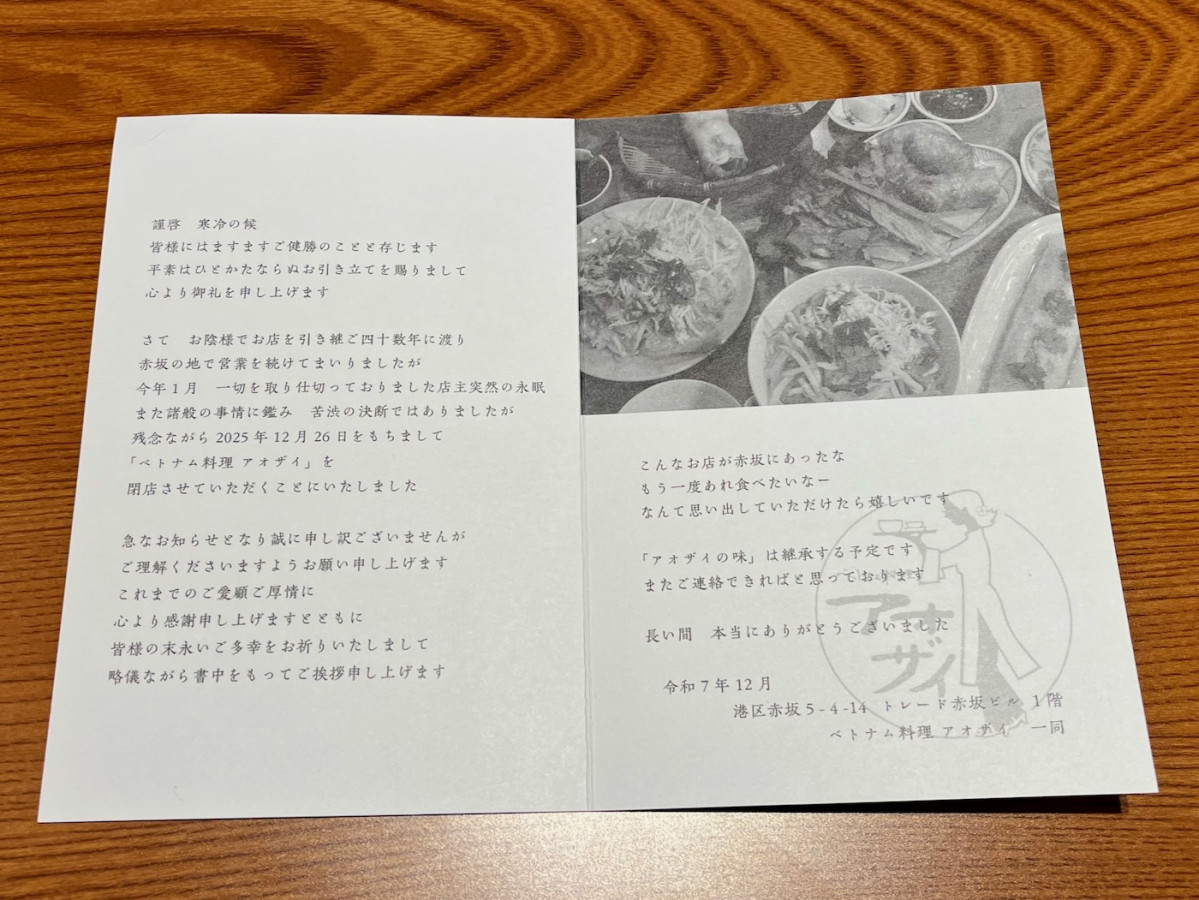 謹啓　寒冷の候
皆様にはますますご健勝のことと存じます
平素はひとかたならぬお引き立てを賜りまして
心より御礼を申し上げます
さて　お陰様でお店を引き継ご四十数年に渡り
赤坂の地で営業を続けてまいりましたが
今年1月　一切を取り仕切っておりました店主突然の永眠
また諸般の事情に鑑み　苦渋の決断ではありましたが
残念ながら2025年12月26日をもちまして
「ベトナム料理 アオザイ」を
閉店させていただくことにいたしました
急なお知らせとなり誠に申し訳ございませんが
ご理解くださいますようお願い申し上げます
これまでのご愛顧ご厚情に
心より感謝申し上げますとともに
皆様の末永いご多幸をお祈りいたしまして
略儀ながら書中をもってご挨拶申し上げます
こんなお店が赤坂にあったな
もう一度あれ食べたいなー
なんて思い出していただけたら嬉しいです
「アオザイの味」は継承する予定です
またご連絡できればと思っております
長い間　本当にありがとうございました
令和7年12月
港区赤坂5-4-14 トレード赤坂ビル 1階
ベトナム料理 アオザイ　一同
アオザイ